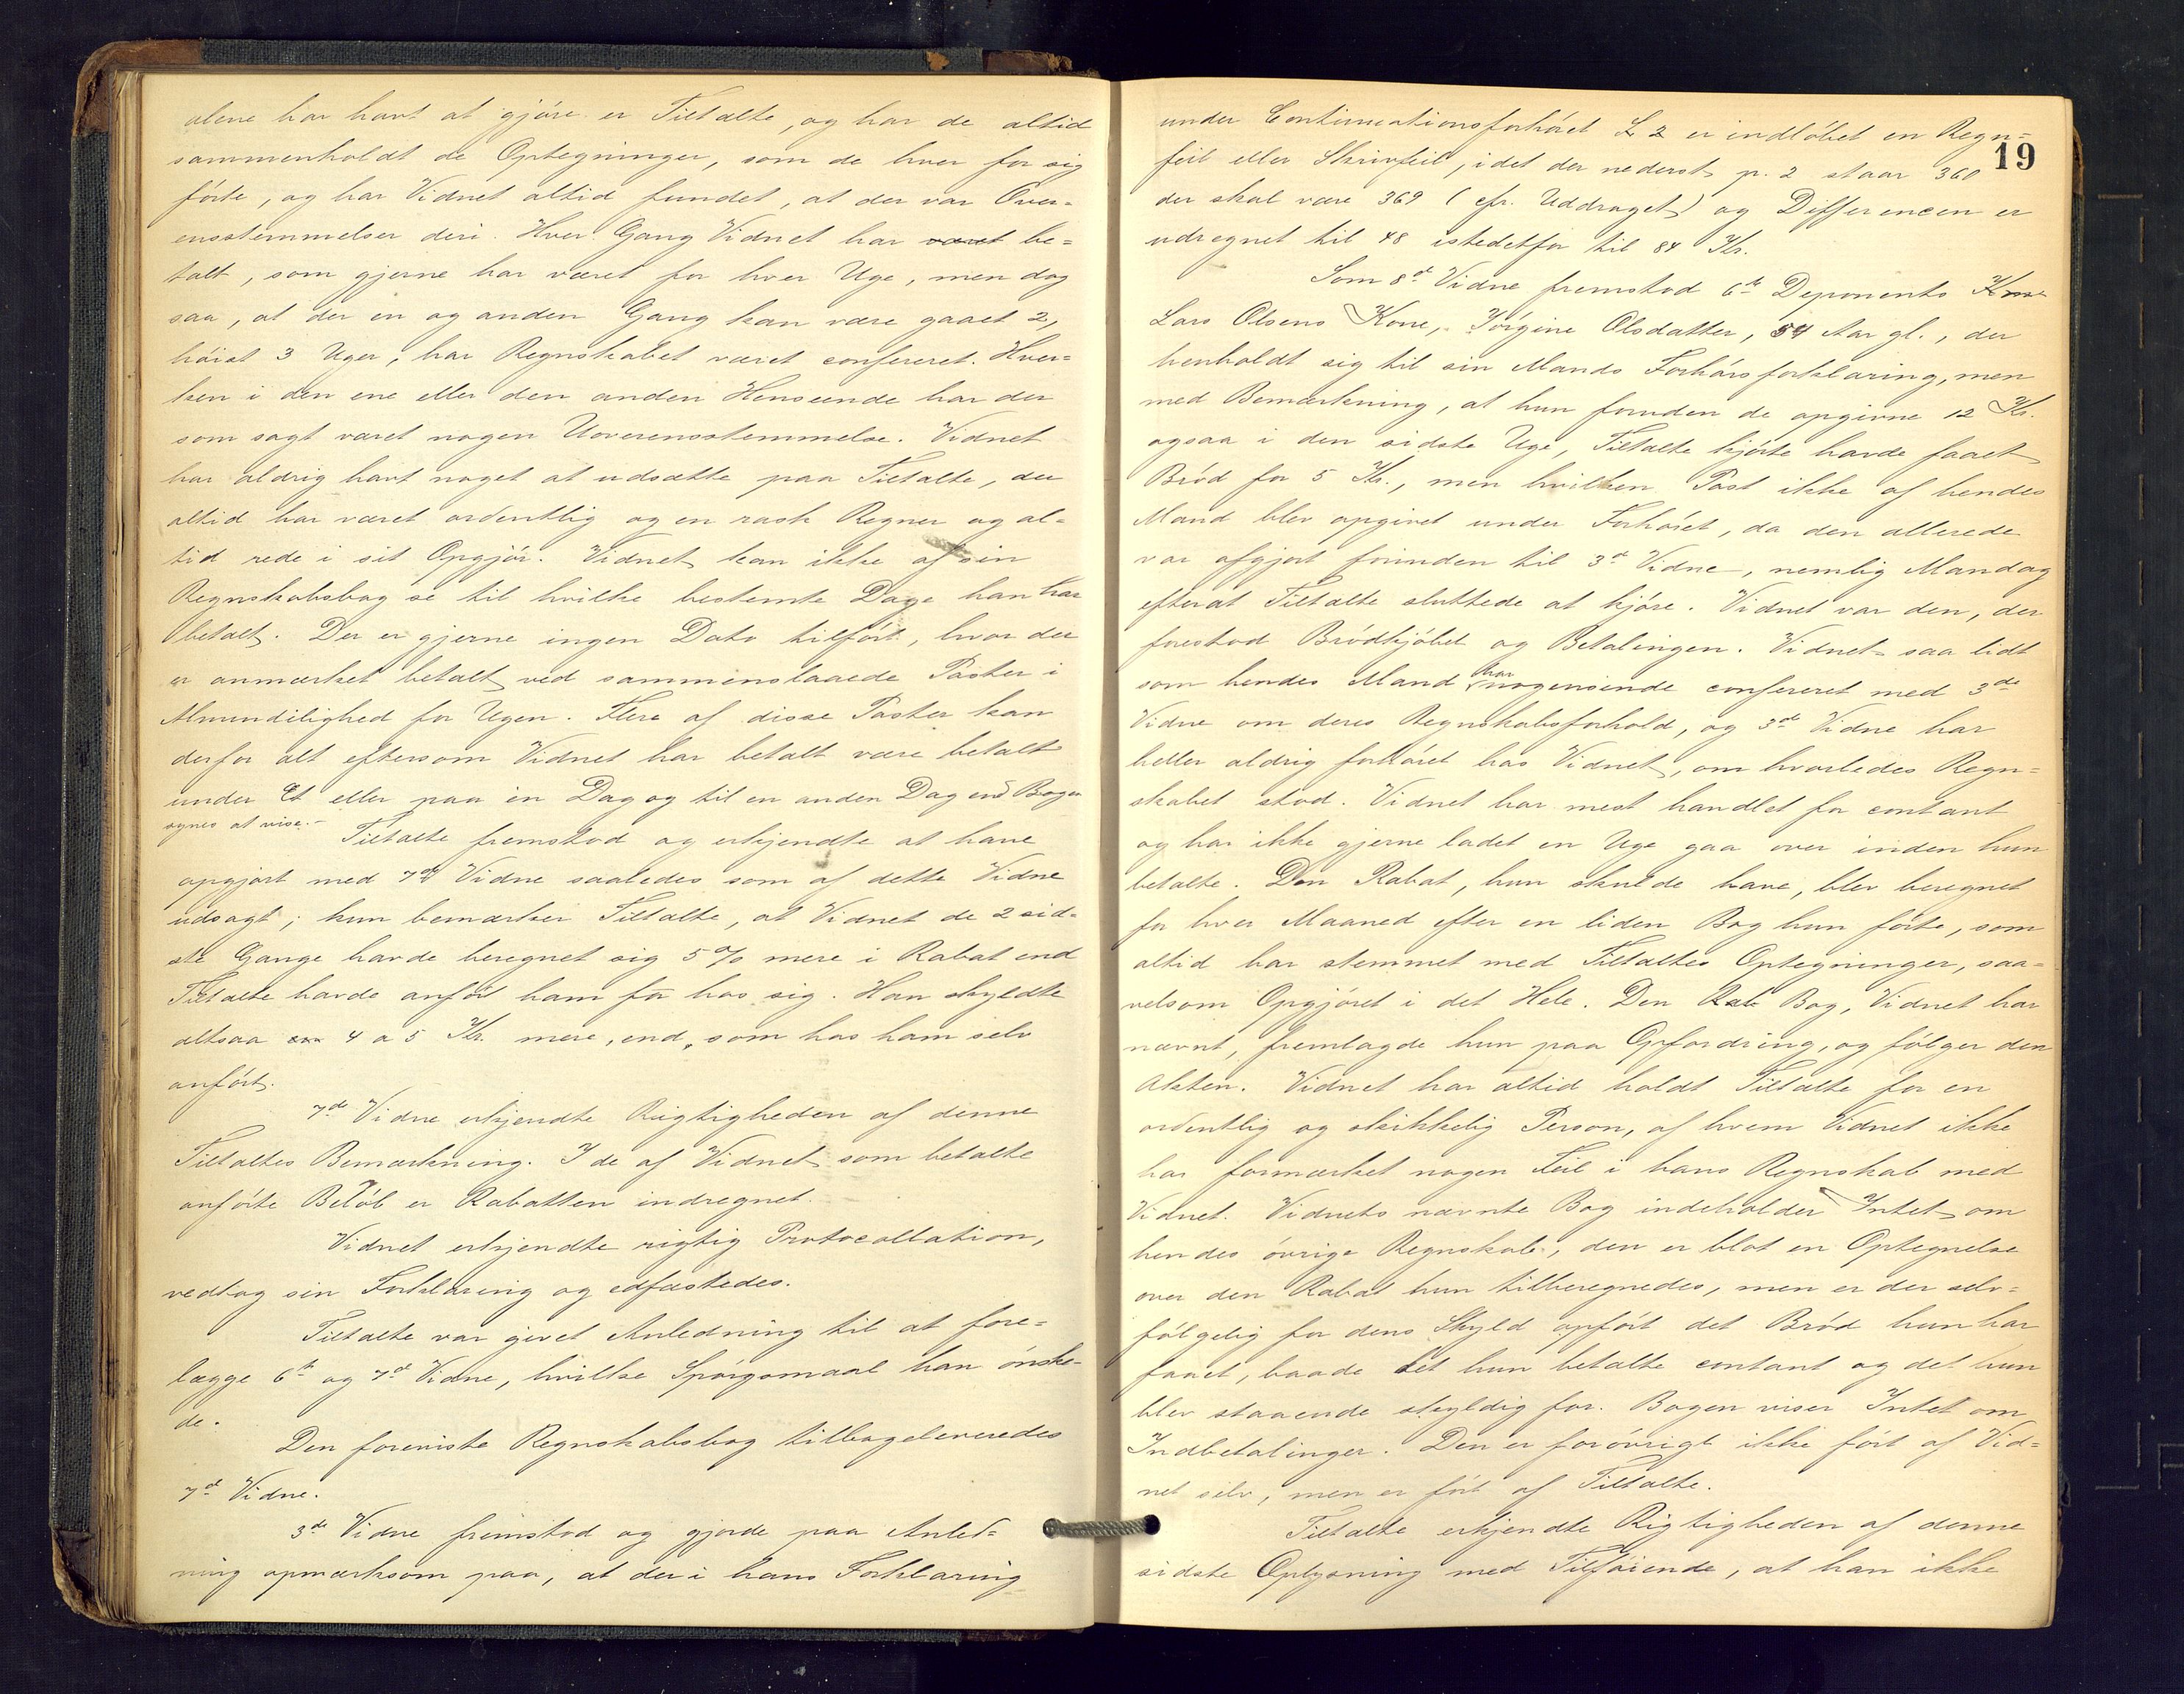 alene har havt at gjøre er Tiltalte, og har de altid
sammenholdt de Optegninger, som de hver for sig
førte, og har Vidnet altid fundet, at der var Over-
ensstemmelser deri. Hver Gang Vidnet har været be-
talt, som gjerne har været for hver Uge, men dog
saa, at der en og anden Gang kan være gaaet 2,
høist 3 Uger, har Regnskabet været confereret. Hver-
ken i den ene eller den anden Henseende har der
som sagt været nogen Uoverensstemmelse. Vidnet
har aldrig havt noget at udsætte paa Tiltalte, der
altid har været ordentlig og en rask Regner og al-
tid rede i sit Opgjør. Vidnet kan ikke af sin
Regnskabsbog se til hvilke bestemte Dage han har
betalt. Der er gjerne ingen Dato tilført, hvor der
er anmærket betalt ved sammenslaaede Poster i
Almindelighed for Ugen. Flere af disse Poster kan
derfor alt eftersom Vidnet har betalt være betalt
under Et eller paa en Dag og til en anden Dag end Bogen
synes at vise.-
Tiltalte fremstod og erkjendte at have
opgjort med 7de Vidne saaledes som af dette Vidne
udsagt; kun bemærker Tiltalte, at Vidnet de 2 sid-
ste Gange havde beregnet sig 5% mere i Rabat end
Tiltalte havde anført ham for hos sig. Han skyldte
altsaa 4 a 5 Kr. mere, end som hos ham selv
anført.
7de Vidne erkjendte Rigtigheden af denne
Tiltaltes Bemærkning. I de af Vidnet som betalte
anførte Beløb er Rabatten indregnet.
Vidnet erkjendte rigtig Protocollation,
vedtog sin Forklaring og edfæstedes.
Tiltalte var givet Anledning til at fore-
lægge 6te og 7de Vidne, hvilke Spørgsmaal han ønske-
de.
Den foreviste Regnskabsbog tilbageleveredes
7de Vidne.
3de Vidne fremstod og gjorde paa Anled-
ning opmærksom paa, at der i hans Forklaring
19
under Continuationsforhøret L 2 er indløbet en Regn-
feil eller Skrivfeil, idet der nederst p. 2 staar 360
der skal være 369 (cfr. Uddraget) og Differencen er
udregnet til 48 istedetfor til 84 Kr.
Som 8de Vidne fremstod 6te Deponents Kone
Lars Olsens Kone, Jørgine Olsdatter, 54 Aar gl., der
henholdt sig til sin Mands Forhørsforklaring, men
med Bemærkning, at hun foruden de opgivne 12 Kr.
ogsaa i den sidste Uge, Tiltalte kjørte havde faaet
Brød for 5 Kr., men hvilken Post ikke af hendes
Mand blev opgivet under Forhøret, da den allerede
var afgjort forinden til 3de Vidne, nemlig Mandag
efterat Tiltalte sluttede at kjøre. Vidnet var den, der
forestod Brødkjøbet og Betalingen. Vidnet saa lidt
som hendes Mand har nogensinde confereret med 3de
Vidne om deres Regnskabsforhold, og 3de Vidne har
heller aldrig forhørt hos Vidnet, om hvorledes Regn-
skabet stod. Vidnet har mest handlet for contant
og har ikke gjerne ladet en Uge gaa over inden hun
betalte. Den Rabat, hun skulde have, blev beregnet
for hver Maaned efter en liden Bog hun førte, som
altid har stemmet med Tiltaltes Optegninger, saa-
velsom Opgjøret i det Hele. Den Bog, Vidnet har
nævnt, fremlagde hun paa Opfordring, og følger den
Akten. Vidnet har altid holdt Tiltalte for en
ordentlig og skikkelig Person, af hvem Vidnet ikke
har formærket nogen Feil i hans Regnskab med
Vidnet. Vidnets nævnte Bog indeholder Intet om
hendes øvrige Regnskab, den er blot en Optegnelse
over den Rabat hun tilberegnedes, men er der selv-
følgelig for dens Skyld opført det Brød hun har
faaet, baade det hun betalte contant og det hun
blev staaende skyldig for. Bogen viser Intet om
Indbetalinger. Den er forøvrigt ikke ført af Vid-
net selv, men er ført af Tiltalte.
Tiltalte erkjendte Rigtigheden af denne
sidste Oplysning med Tilføiende, at han ikke